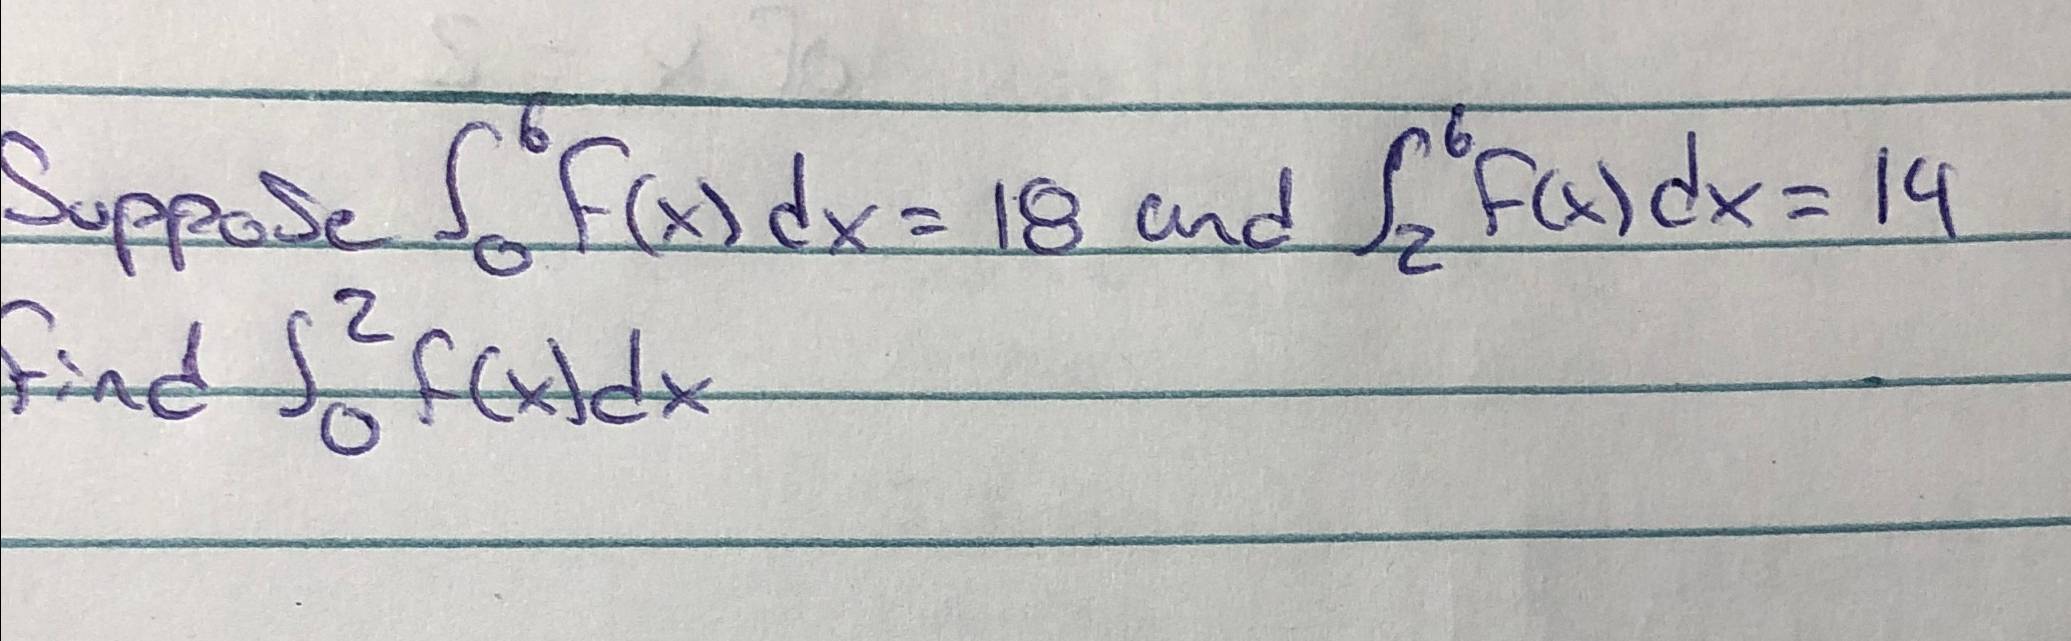 Suppose ∫₀⁶ f(x) dx = 18 and ∫₂⁶ f(x) dx = 14
Find ∫₀² f(x) dx